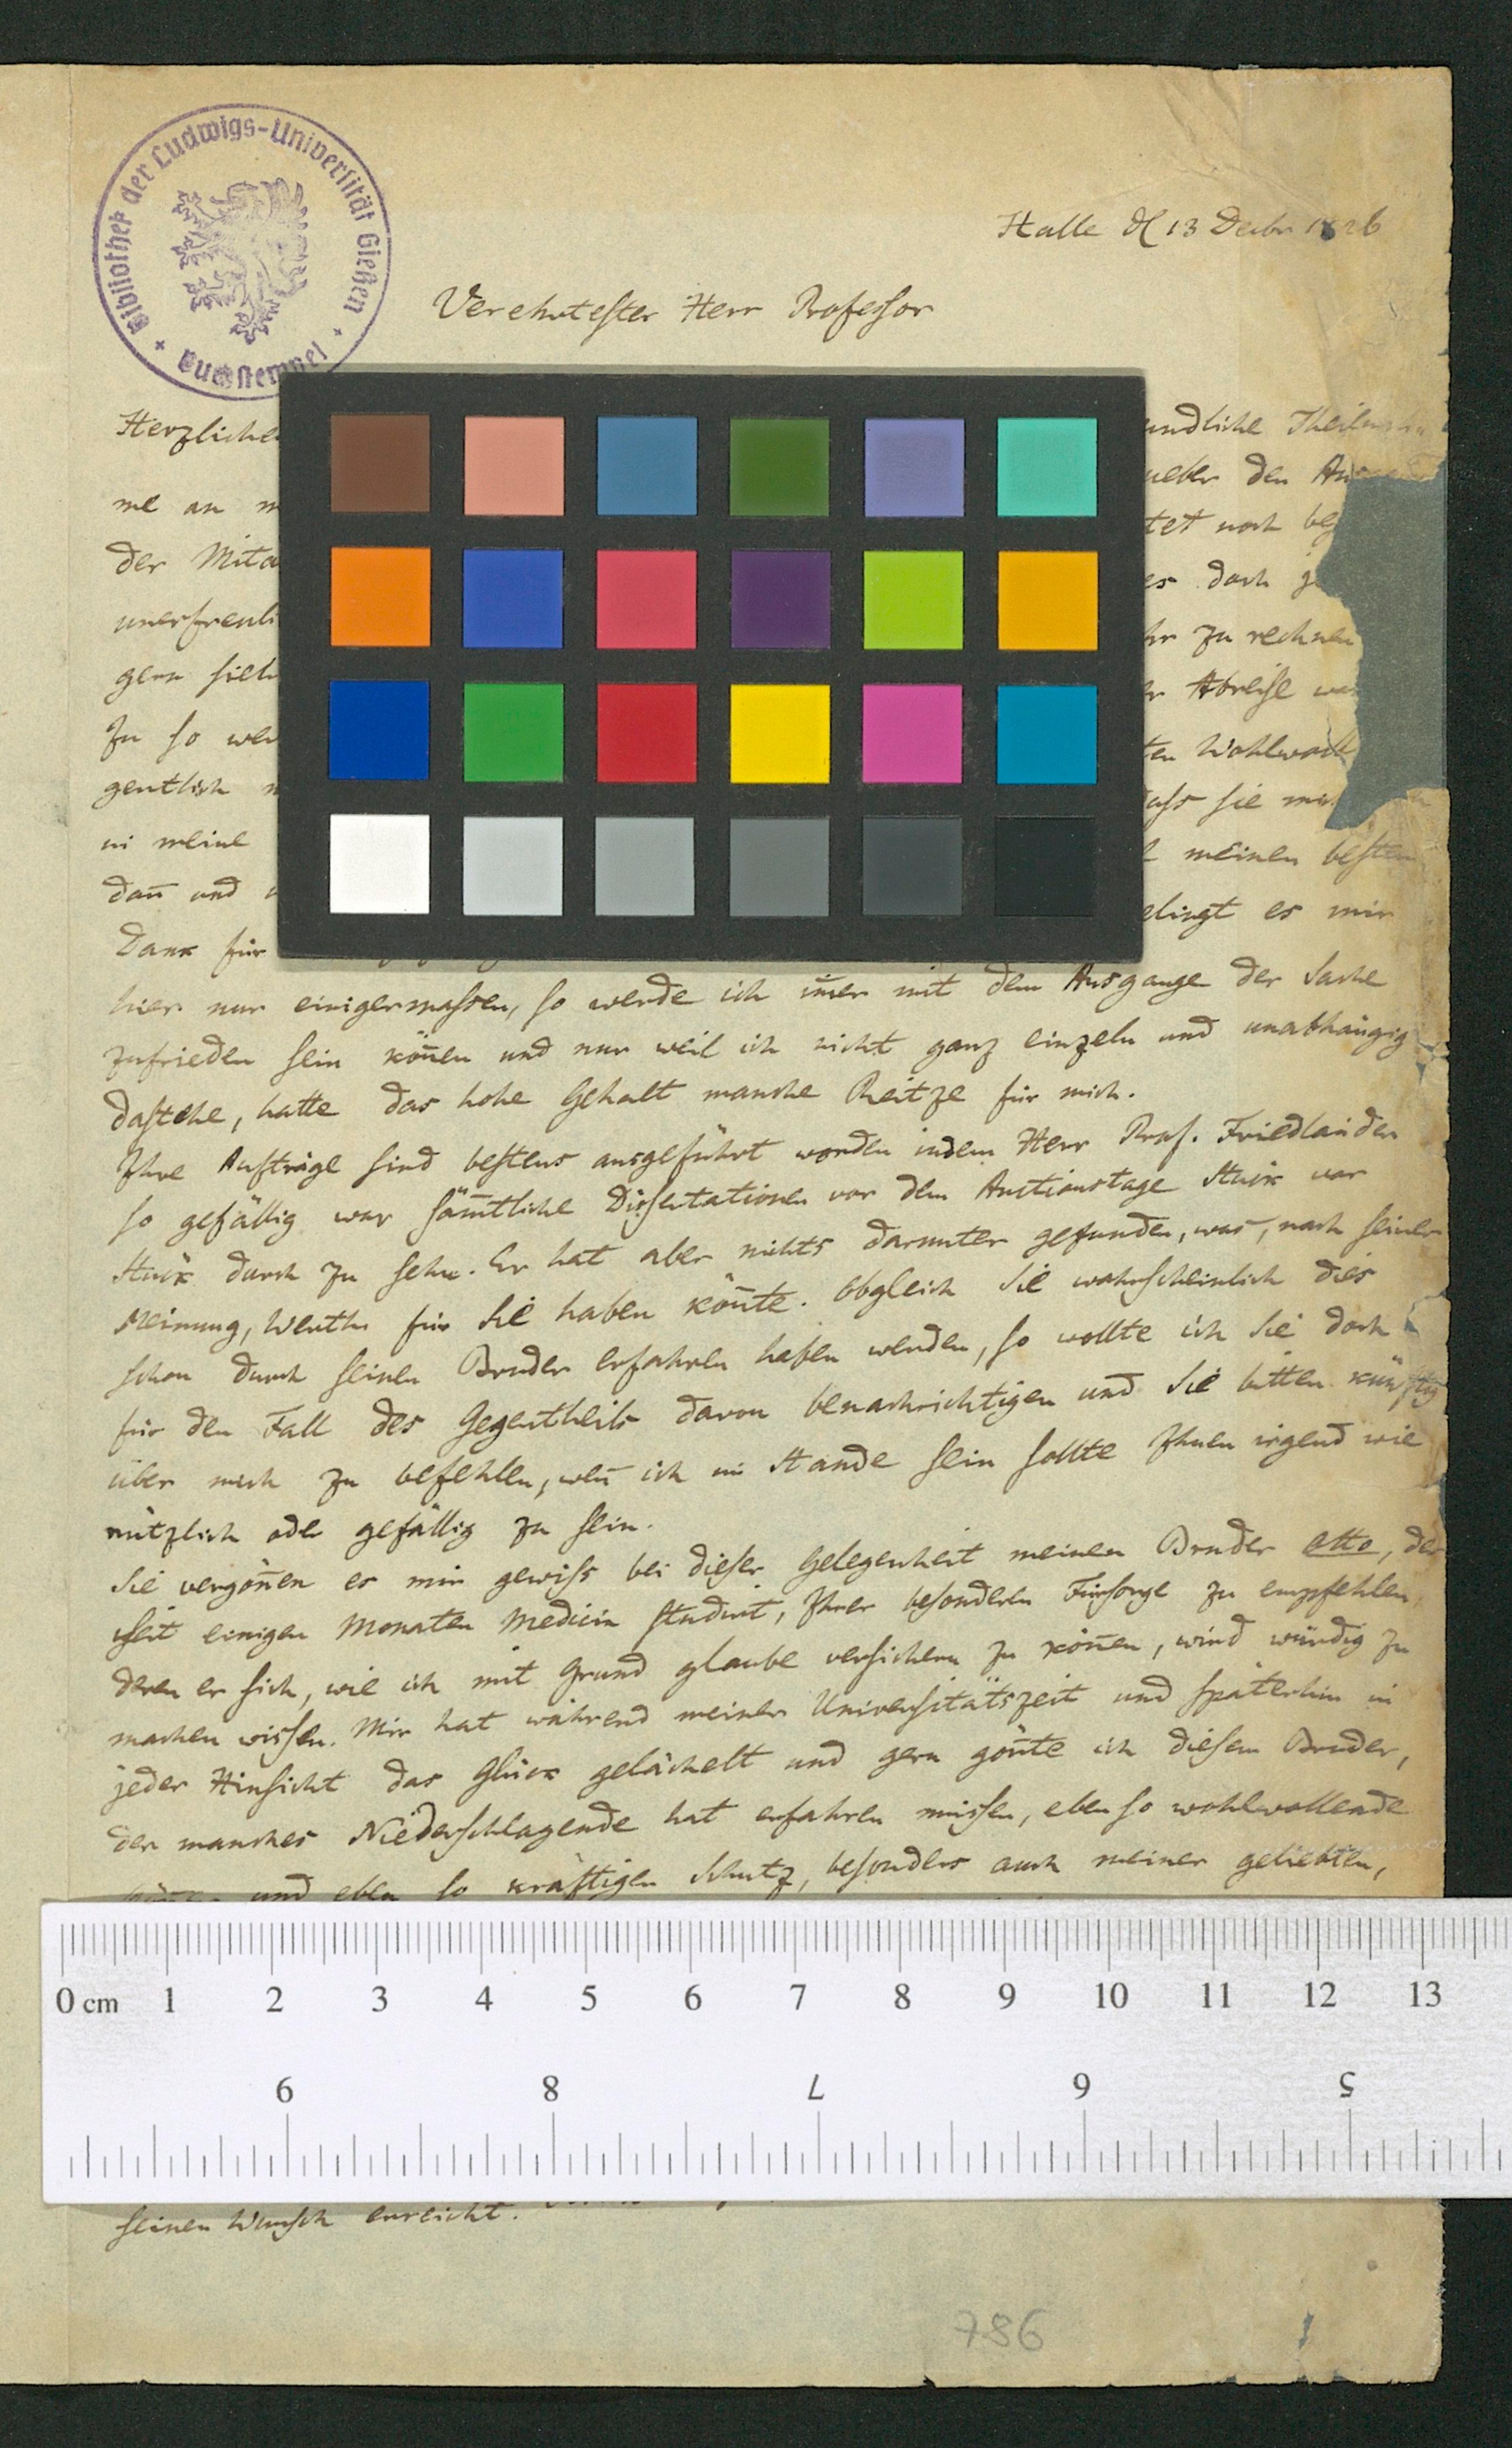 Bibliothek der Ludwigs-Universität Gießen
Buchstempel
Halle d 13 Decbr 1826
Verehrtester Herr Professor
Herzliche
undliche
me an m
ueber den
der Mita
tet noch
unerfreuli
es doch
gern sieh
hr zu rechnen
r Abreise
zu so wei
ten
gentlich
ass sie
in meine
meinen besten
dan̄ und
elingt es mir
Dank für
hier nur einigermassen, so werde ich im̄er mit dem Ausgange der Sache
zufrieden sein kön̄en und nur weil ich nicht ganz einzeln und unabhängig
dastehe, hatte das hohe Gehalt manche Reitze für mich.
Ihre Aufträge sind bestens ausgeführt worden indem Herr Prof. Friedländer
so gefällig war säm̄tliche Dissertationen vor dem Auctionstage Stück vor
Stück durch zu sehn. Er hat aber nichts darunter gefunden, was, nach seiner
Meinung, Werth für Sie haben kön̄te. Obgleich Sie wahrscheinlich dies
schon durch seinen Bruder erfahren haben werden, so wollte ich Sie doch
für den Fall des Gegentheils davon benachrichtigen und Sie bitten künftig
über mich zu befehlen, wen̄ ich im Stande sein sollte Ihnen irgend wie
nützlich oder gefällig zu sein.
Sie vergön̄en es mir gewiss bei dieser Gelegenheit meinen Bruder Otto, der
seit einigen Monaten Medicin studirt, Ihrer besonderen Fürsorge zu empfehlen,
deren er sich, wie ich mit Grund glaube versichern zu kön̄en, wird würdig zu
machen wissen. Mir hat während meiner Universitätszeit und späterhin in
jeder Hinsicht das Glück gelächelt und gern gön̄te ich diesem Bruder,
der manches Niederschlagende hat erfahren müssen, eben so wohlwollende
und eben so kräftigen Schutz, besonders auch meiner geliebten,
0 cm 1 2 3 4 5 6 7 8 9 10 11 12 13
9 8 7 6 5
seinen Wunsch erreicht.
786